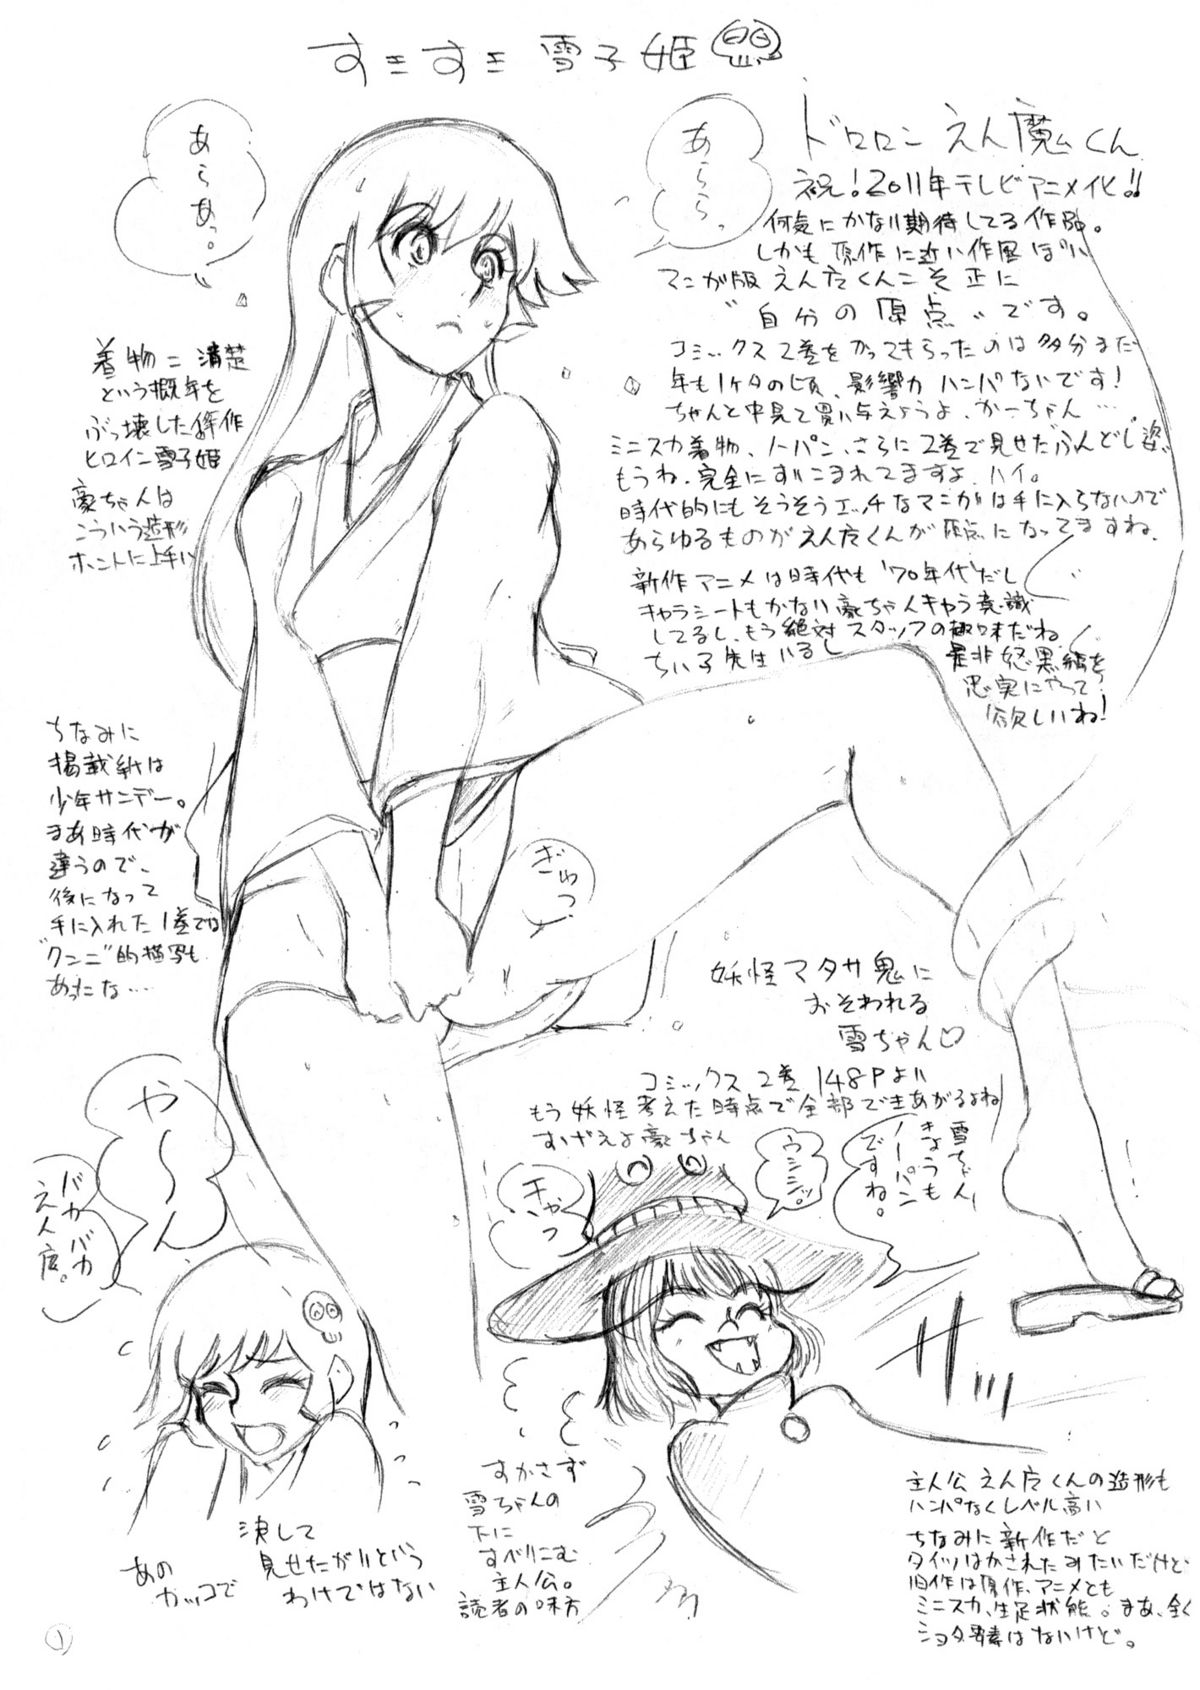 すきすき雪子姫
あらあっ。
あらら
ドロロンえん魔くん
祝!2011年テレビアニメ化!!
何気にかなり期待してる作品。
しかも原作に近い作風ぽい
マンガ版えん广くんこそ正に
"自分の原点"です。
コミックス2巻をかってもらったのは多分まだ
年も1ケタの頃、影響力ハンパないです!
ちゃんと中見て買い与えようよ、かーちゃん…
ミニスカ着物、ノーパン、さらに2巻で見せたふんどし姿、
もうね、完全にすりこまれてますよ、ハイ。
時代的にもそうそうエッチなマンガは手に入らないので
あらゆるものがえん广くんが原点になってますね、
新作アニメは時代も'70年代だし
キャラシートもかない豪ちゃんキャラ意識
してるし、もう絶対スタッフの趣味だね
ちい子先生いるし
是非
忠実にやって
欲しいね!
着物=清楚
という概年を
ぶっ壊した
ヒロイン雪子姫
豪ちゃんは
こういう造形
ホントに上手い
ちなみに
掲載紙は
少年サンデー。
まあ時代が
違うので、
後になって
手に入れた1巻では
"クンニ"的描写も
あったな…
ぎゅっ
妖怪マタサ鬼に
おそわれる
雪ちゃん♡
コミックス2巻148Pより
もう妖怪考えた時点で全部できあがるよね
すげえよ豪ちゃん
雪ちゃん、
きょうも
ノーパン
ですね。
ウシシッ
きゃっ
や〜〜ん
バカバカ
えん広。
ザッ
すかさず
雪ちゃんの
下に
すべりこむ
主人公。
読者の味方
あの
カッコで
決して
見せたがりという
わけではない
主人公えん广くんの造形も
ハンパなくレベル高い
ちなみに新作だと
タイツはかされたみたいだけど
旧作は原作、アニメとも
ミニスカ、生足状態。まあ、全く
ショタ要素はないけど。
1